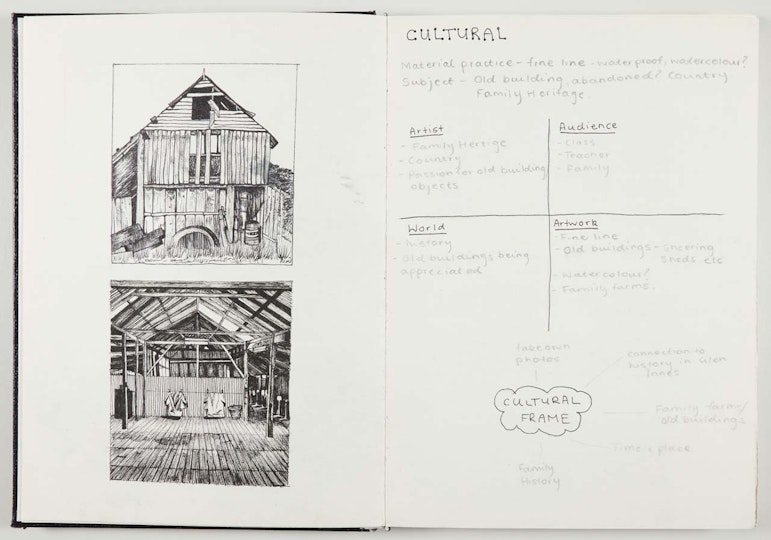 CULTURAL
Material practice - fine line - waterproof, watercolour?
Subject - Old building, abandoned? Country
Family Heritage.
Artist
- Family Heritge
- Country
- Passion for old building
objects
Audience
- Class
- Teacher
- Family
World
- history
- Old buildings being
appreciated
Artwork
- Fine line
- Old buildings - Sheering
Sheds etc
- Watercolour?
- Family farms.
take own
photos
connection to
history in Glen
Innes
CULTURAL
FRAME
Family farms/
old buildings
Time & place
Family
History